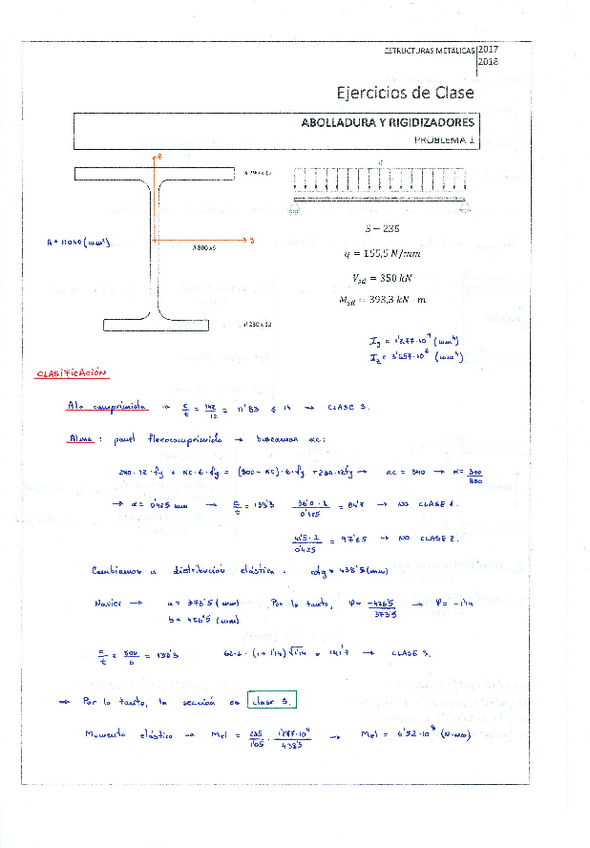 ESTRUCTURAS METÁLICAS 2017
2018
Ejercicios de Clase
ABOLLADURA Y RIGIDIZADORES
PROBLEMA 1
z
q
y
A = 11040 (mm²)
# 800 x 6
S − 235
q = 155,5 N/mm
V_sd = 350 kN
# 230 x 12
M_sd = 393,3 kN · m
I_y = 1'277·10⁹ (mm⁴)
I_z = 3'657·10⁷ (mm⁴)
CLASIFICACIÓN
Ala comprimida → c/t = 142/12 = 11'83 ≤ 14 → CLASE 3.
Alma : panel flexocomprimido → buscamos αc:
290·12·fy + αc·6·fy = (800 − αc)·6·fy + 230·12fy → αc = 340 → α = 340/800
→ α = 0'425 mm → c/t = 133'3 36'0·1/0'425 = 84'7 → NO CLASE 1.
41'5·1/0'425 = 97'65 → NO CLASE 2.
Cambiamos a distribución elástica : cdg = 438'5 (mm)
Navier → a = 373'5 (mm) Por lo tanto, ψ = −426'5/373'5 → ψ = −1'14
b = 426'5 (mm)
c/t = 800/6 = 133'3 62·1·(1+1'14)√1'14 = 141'7 → CLASE 3.
→ Por lo tanto, la sección es clase 3.
Momento elástico → Mel = 235/1'05 · 1'277·10⁹/438'5 → Mel = 6'52·10⁸ (N·mm)